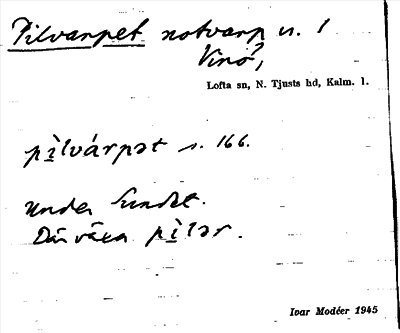 Pilvarpet notvarp n. 1
Vinö,
Lofta sn, N. Tjusts hd, Kalm. l.
pi̱lvárpət s. 166.
under Sundet.
Där växa pi̱lər.
Ivar Modéer 1945